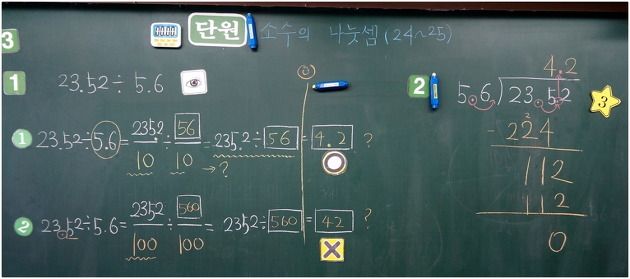 3 00:00 단원 소수의 나눗셈 (24~25)
1 23.52÷5.6
① 23.52÷5.6=235.2/10÷56/10=235.2÷56=4.2 ?
→?
② 23.52÷5.6=2352/100÷560/100=2352÷560=42 ?
X
2
4.2
5.6)23.52
3
- 224
112
112
0